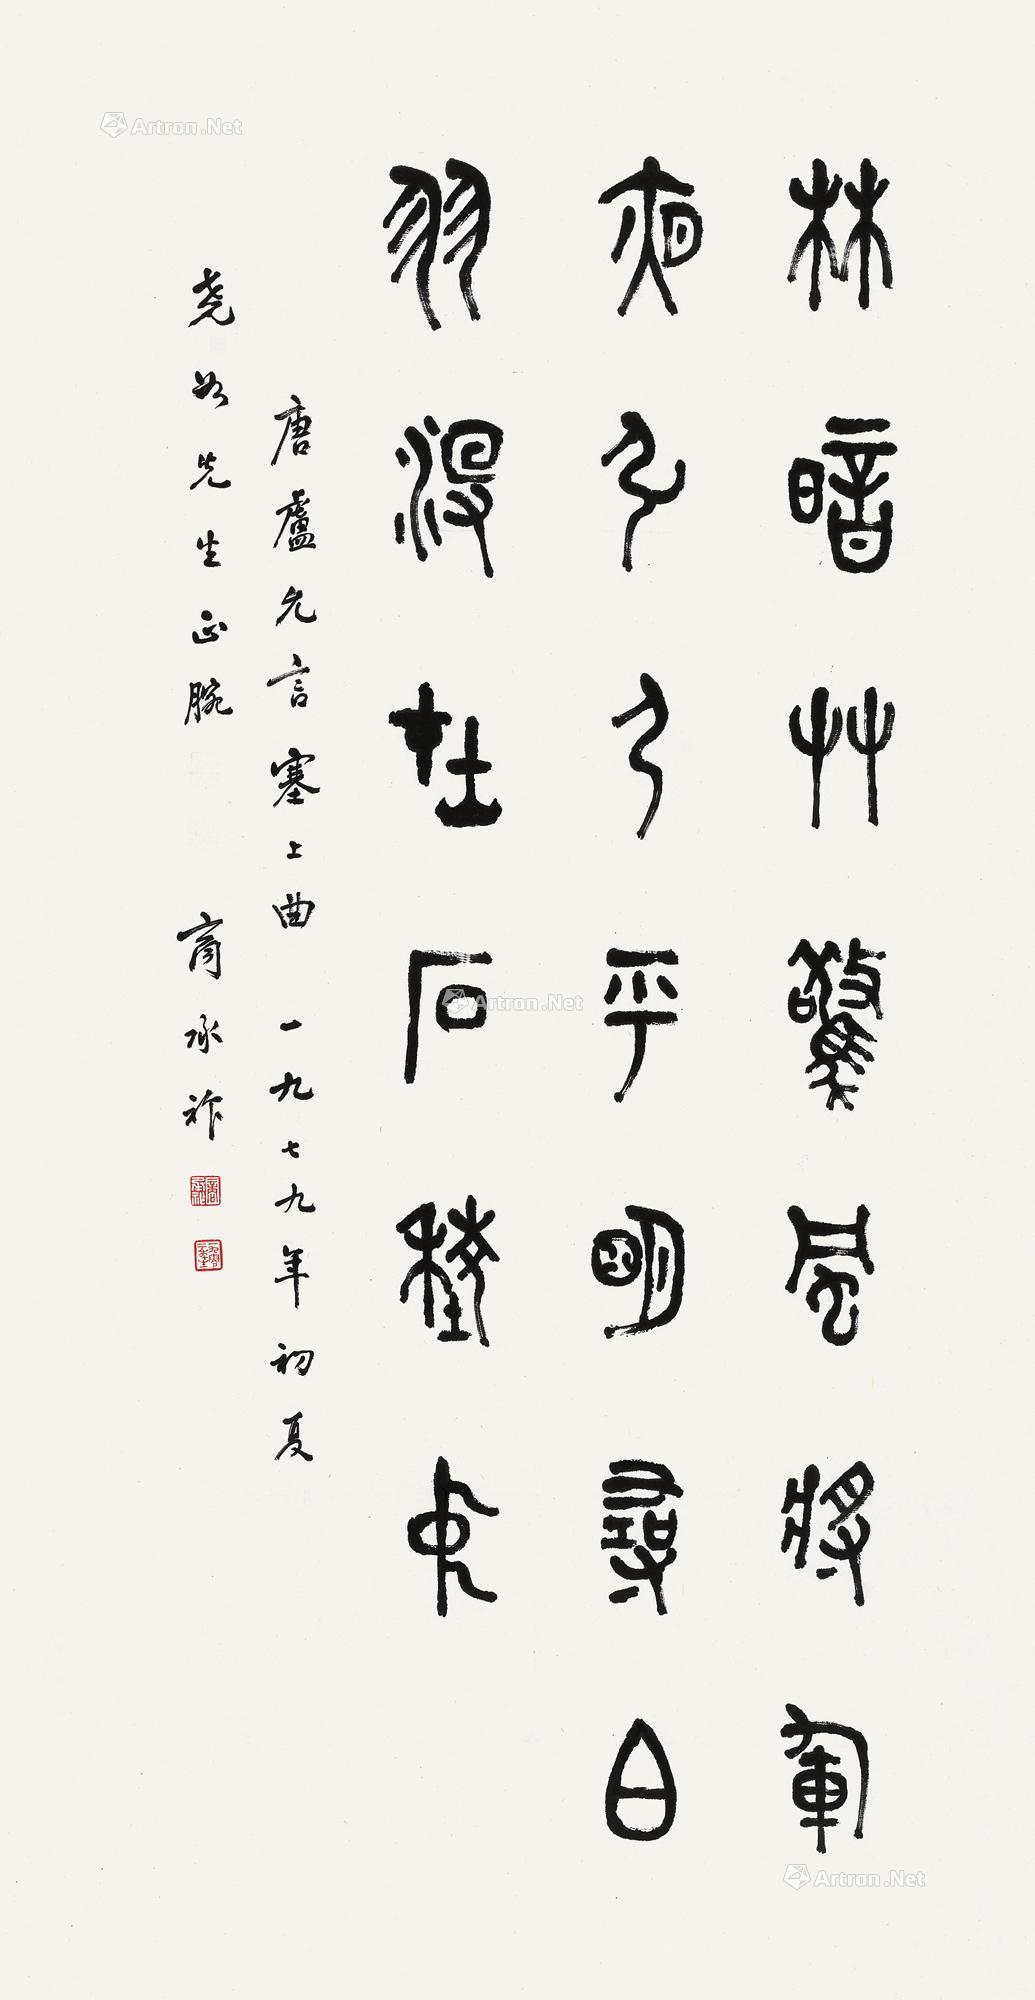 林暗艸驚風將軍
夜引弓平明尋白
羽沒在石稜中
唐盧允言塞上曲 一九七九年初夏
堯如先生正腕 商承祚
Artron.Net
Artron.Net
Artron.Net